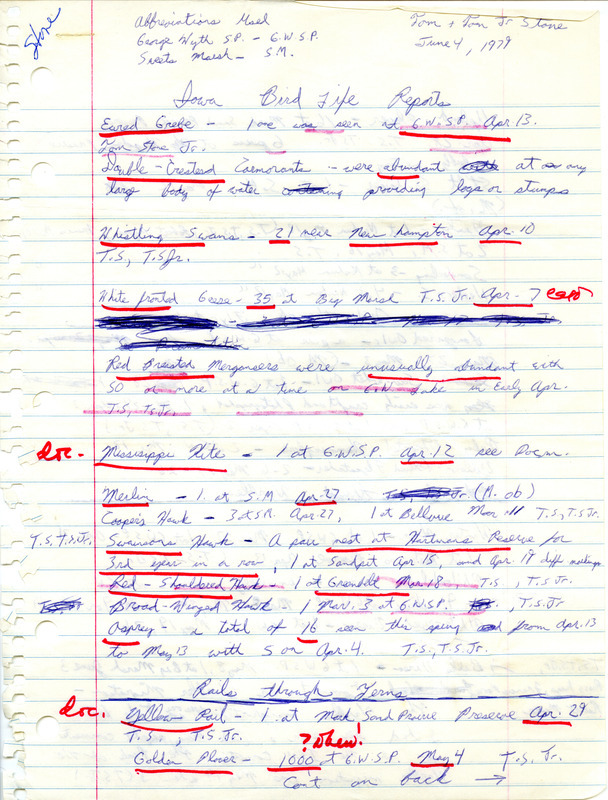 Stone
Abbreviations Used
George Wyth S.P. - G.W.S.P.
Sweets Marsh - S.M.
Tom + Tom Jr Stone
June 4, 1979
Iowa Bird Life Reports
Eared Grebe - 1 one was seen at G.W.S.P. Apr. 13.
Tom Stone Jr.
Double-Crested Cormorants - were abundant at any
large body of water providing logs or stumps
Whistling Swans - 21 near New Hampton Apr. 10
T.S, T.S Jr.
White fronted Geese - 35 at Big Marsh T.S. Jr. Apr. 7
Red Breasted Mergansers were unusually abundant with
50 or more at a time on G.W. Lake in Early Apr.
T.S, T.S. Jr.
Doc. Missisippi Kite - 1 at G.W.S.P. Apr. 12 see Docm.
Merlin - 1 at S.M Apr. 27 Jr. (M. ob)
Coopers Hawk - 3 at S.M. Apr 27, 1 at Bellevue Mar 11 T.S, T.S Jr.
T.S, T.S. Jr. Swainsons Hawk - A pair nest at Hartmans Reserve for
3rd year in a row, 1 at Sandpit Apr 15, and Apr. 19 diff markings
Red-Shouldered Hawk - 1 at Greenbelt Mar. 18 T.S, T.S Jr.
Broad-Winged Hawk 1 Mar. 3 at G.W.S.P. , T.S. Jr
Osprey - a total of 16 seen this spring from Apr. 13
to May 13 with 5 on Apr. 4. T.S., T.S. Jr.
Rails through Terns
Doc. Yellow Rail - 1 at Mark Sand Prairie Preserve Apr. 29
T.S., T.S. Jr.
? Whew!
Golden Plover - 1000 at G.W.S.P. May 4 T.S. Jr.
Con't on back →